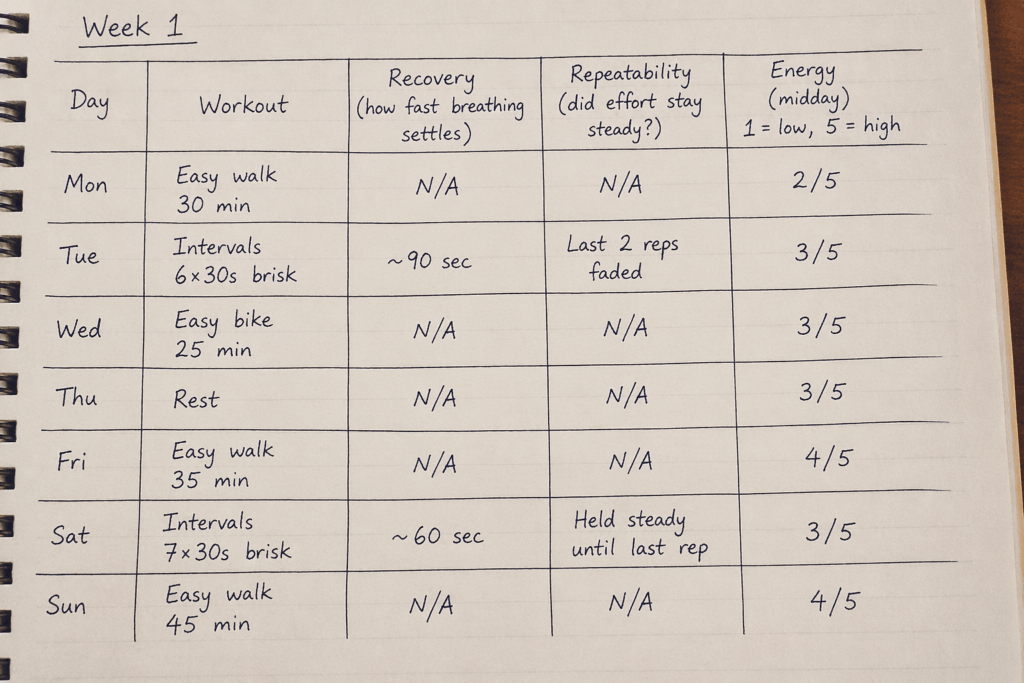 Week 1
Day
Workout
Recovery
(how fast breathing
settles)
Repeatability
(did effort stay
steady?)
Energy
(midday)
1 = low, 5 = high
Mon
Easy walk
30 min
N/A
N/A
2/5
Tue
Intervals
6×30s brisk
~90 sec
Last 2 reps
faded
3/5
Wed
Easy bike
25 min
N/A
N/A
3/5
Thu
Rest
N/A
N/A
3/5
Fri
Easy walk
35 min
N/A
N/A
4/5
Sat
Intervals
7×30s brisk
~60 sec
Held steady
until last rep
3/5
Sun
Easy walk
45 min
N/A
N/A
4/5